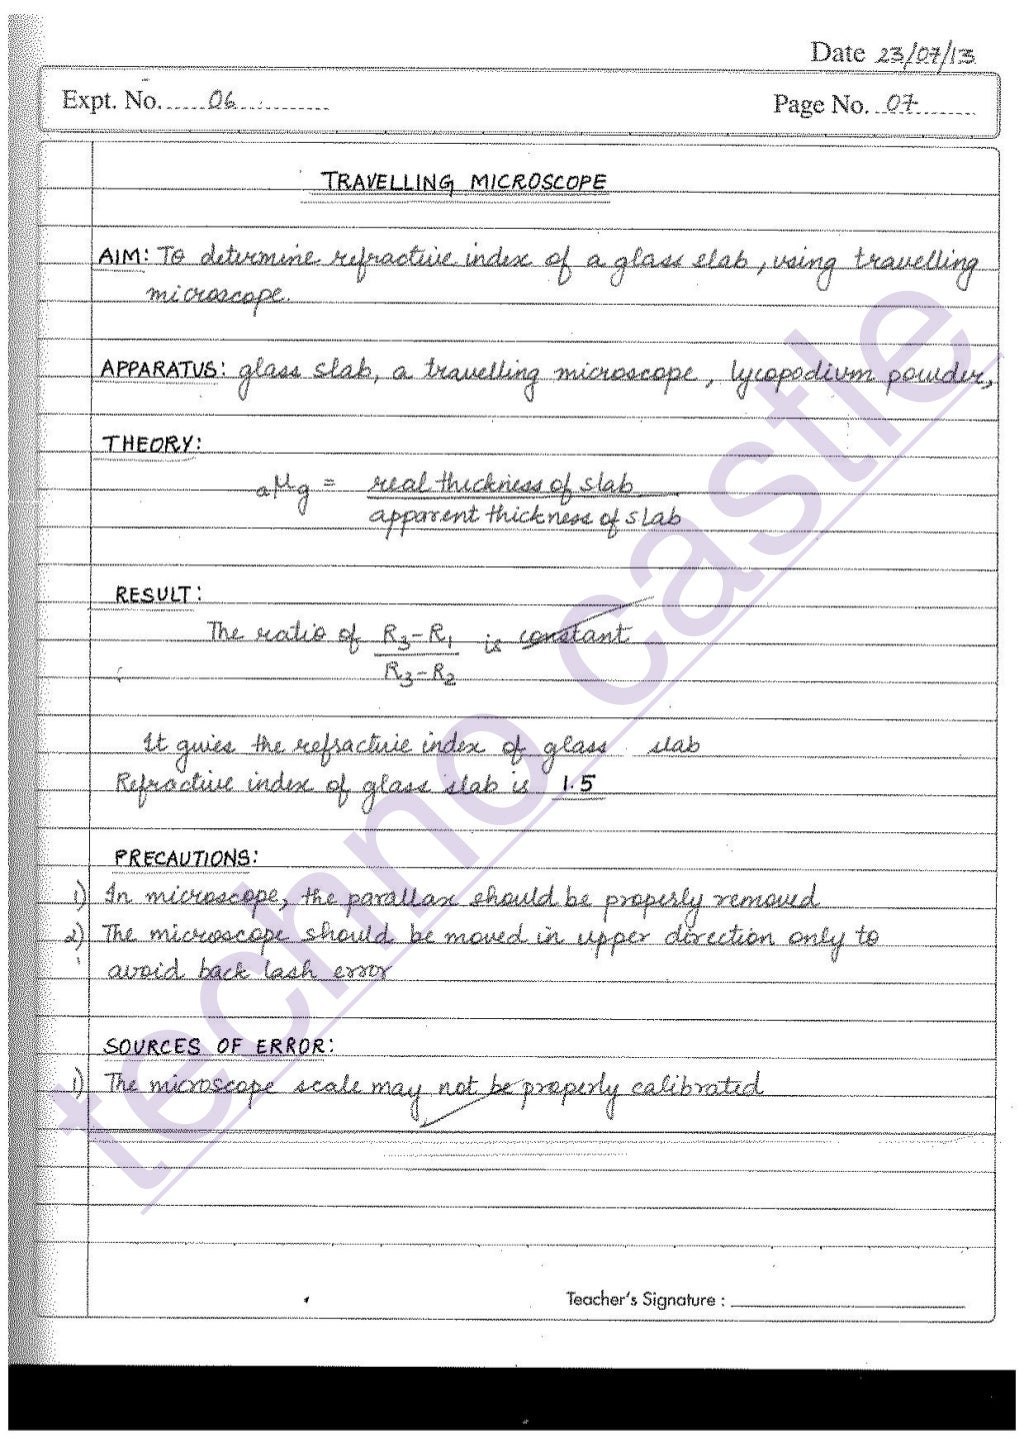 Date 23/07/13
Expt. No. 06
Page No. 07
TRAVELLING MICROSCOPE
AIM: To determine refractive index of a glass slab, using travelling
microscope.
APPARATUS: glass slab, a travelling microscope, lycopodium powder,
THEORY:
aμg = real thickness of slab
apparent thickness of slab
RESULT:
The ratio of R3-R1 is constant
R3-R2
It gives the refractive index of glass slab
Refractive index of glass slab is 1.5
PRECAUTIONS:
1) In microscope, the parallax should be properly removed
2) The microscope should be moved in upper direction only to
avoid back lash error
SOURCES OF ERROR:
1) The microscope scale may not be properly calibrated
Teacher's Signature :
techno castle